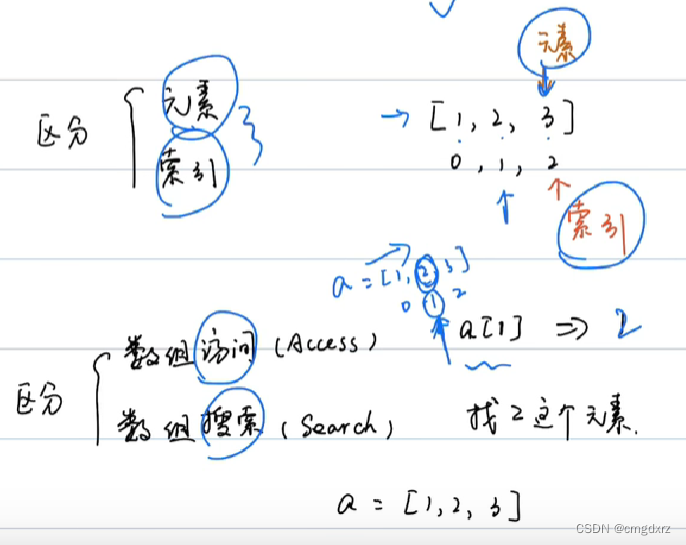 元素
区分
元素
索引
→ [1, 2, 3]
0, 1, 2
索引
a = [1, 2, 3]
0 1 2
区分
数组访问 (Access)
a[1] => 2
数组搜索 (Search)
找2这个元素.
a = [1, 2, 3]
CSDN @cmgdxrz